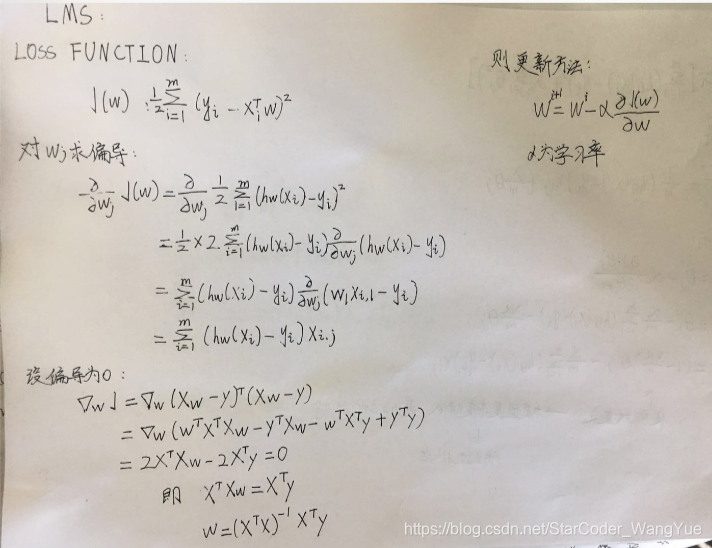 LMS:
LOSS FUNCTION:
J(w) : 1/2 ∑_{i=1}^{m} (y_i - x_i^T w)^2
对 w_j 求偏导:
∂/∂w_j J(w) = ∂/∂w_j 1/2 ∑_{i=1}^{m} (hw(x_i) - y_i)^2
= 1/2 × 2 ∑_{i=1}^{m} (hw(x_i) - y_i) ∂/∂w_j (hw(x_i) - y_i)
= ∑_{i=1}^{m} (hw(x_i) - y_i) ∂/∂w_j (w_j x_{i,j} - y_i)
= ∑_{i=1}^{m} (hw(x_i) - y_i) x_{i,j}
设偏导为0:
∇w J = ∇w (Xw - y)^T (Xw - y)
= ∇w (w^T X^T X w - y^T X w - w^T X^T y + y^T y)
= 2X^T X w - 2X^T y = 0
即 X^T X w = X^T y
w = (X^T X)^{-1} X^T y
则更新方法:
w^{i+1} = w^i - α ∂J(w)/∂w
α为学习率
https://blog.csdn.net/StarCoder_WangYue